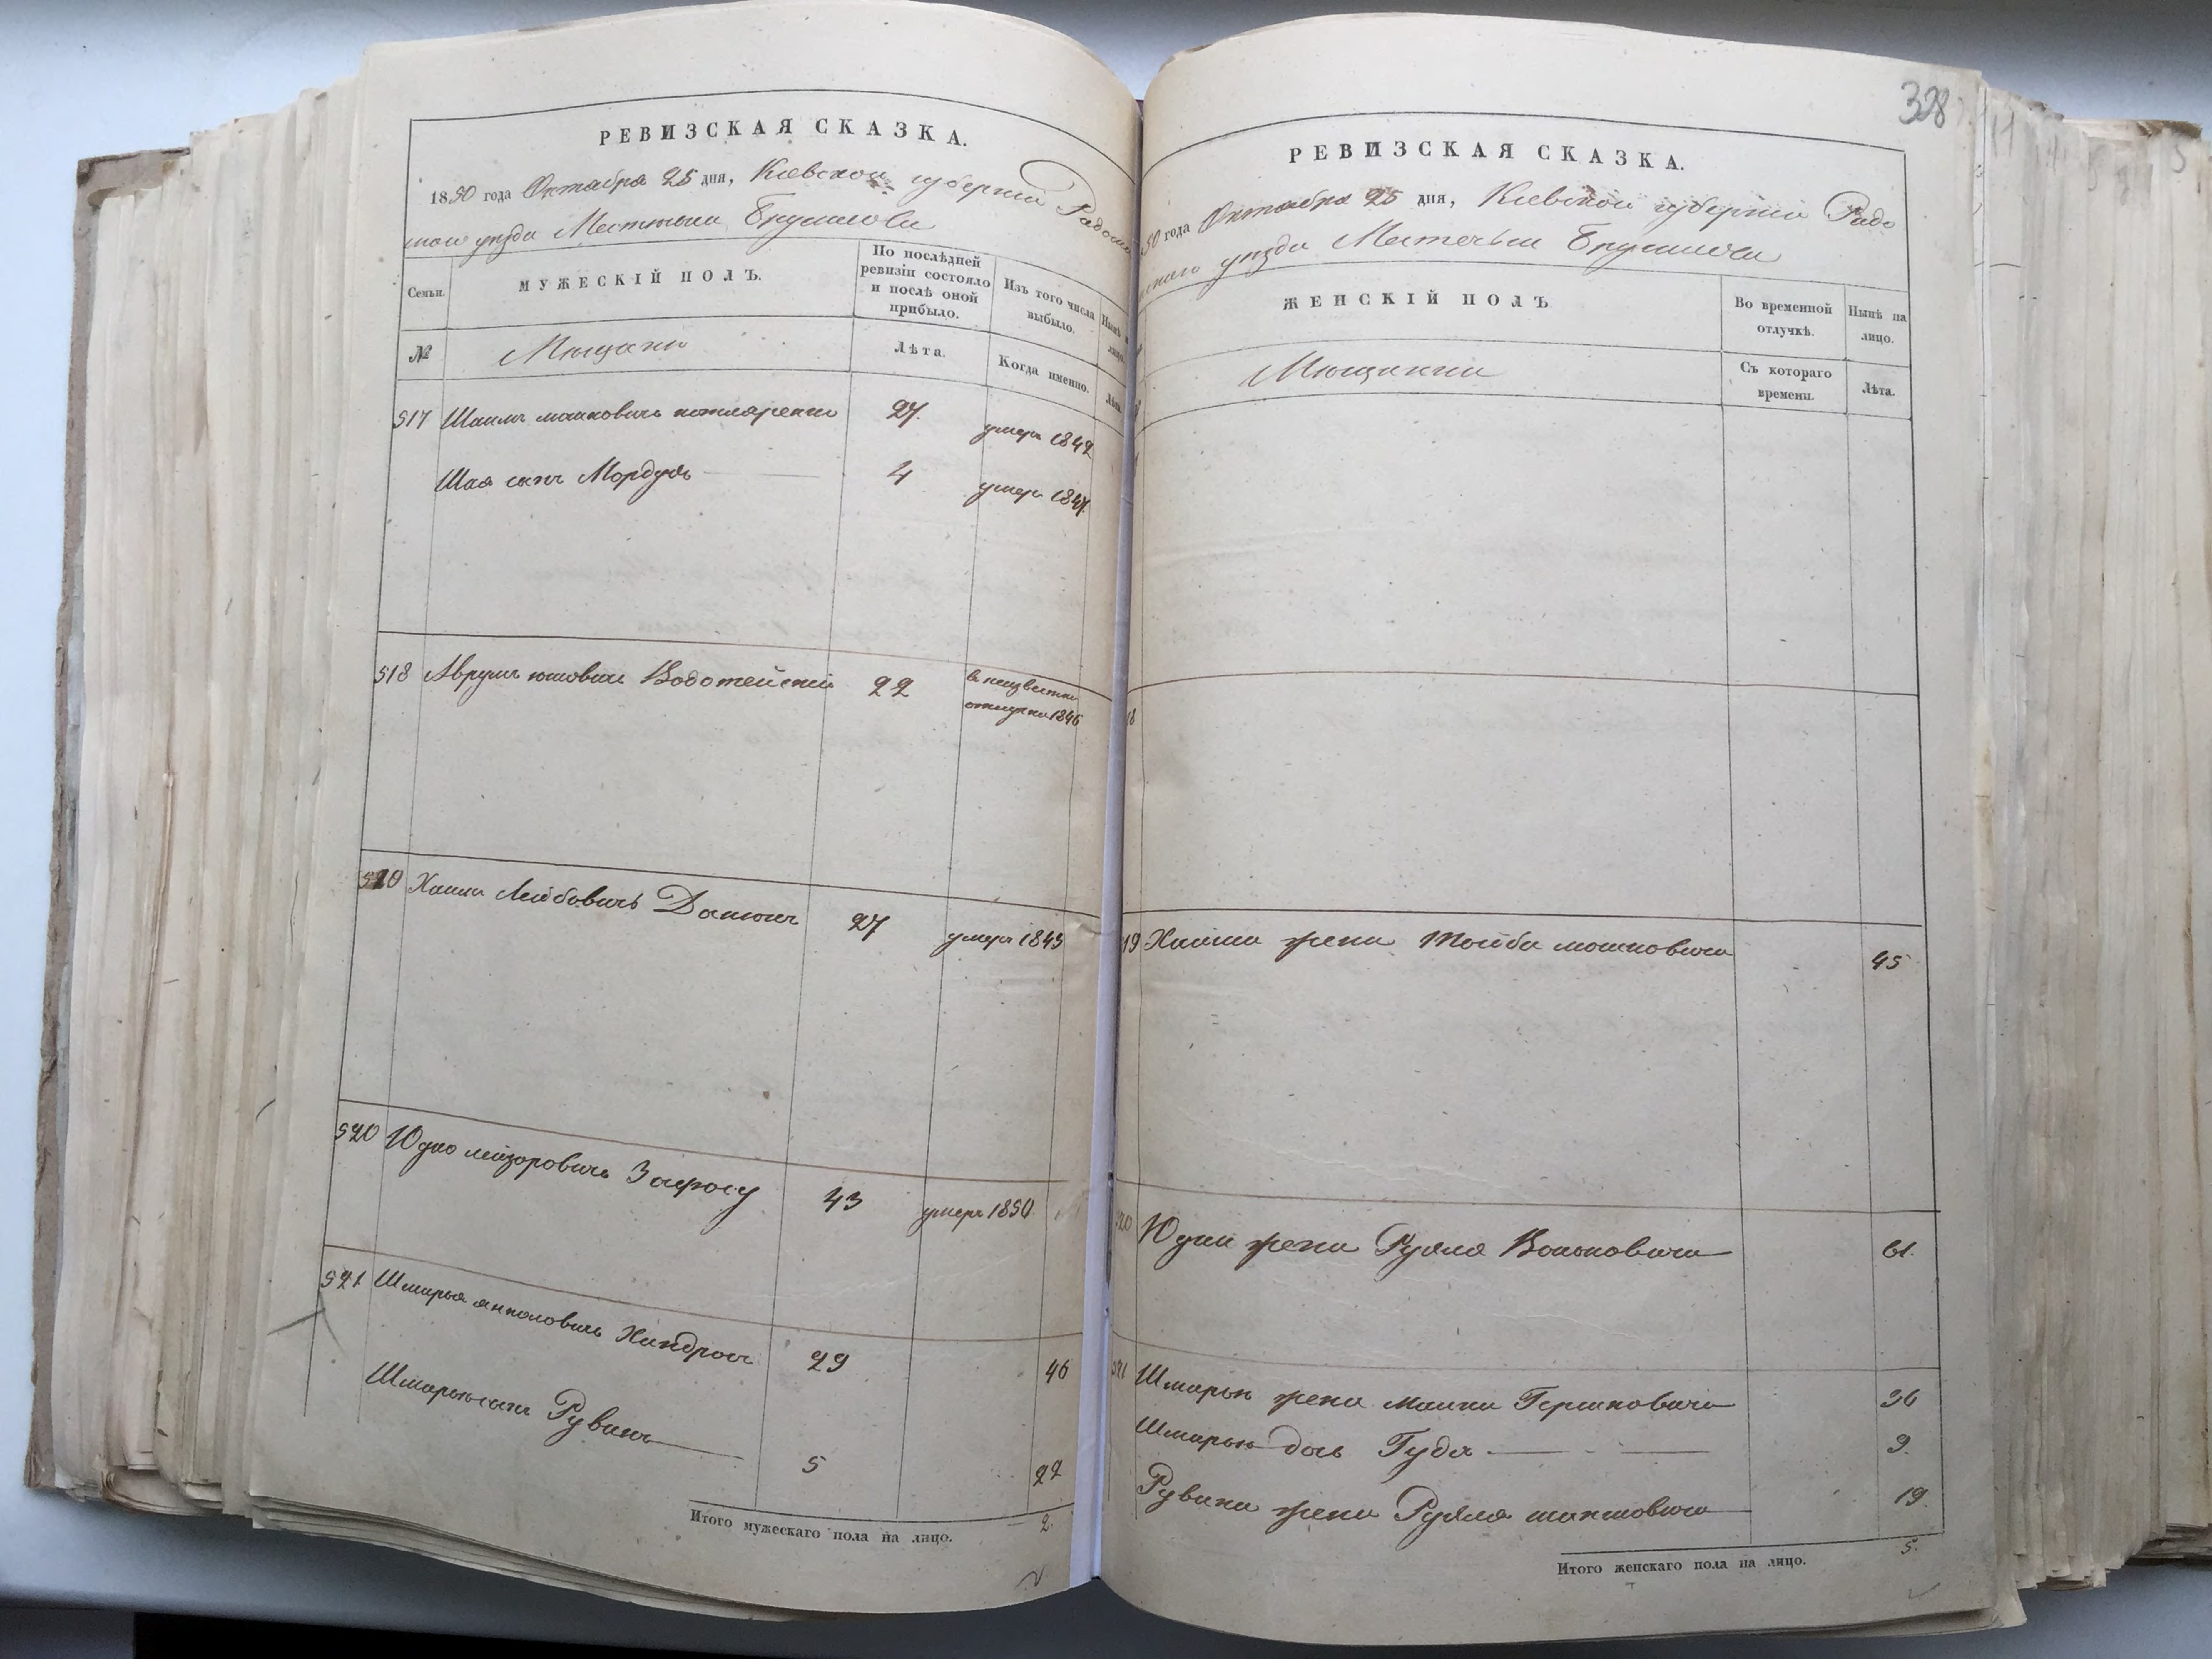 РЕВИЗСКАЯ СКАЗКА.
1850 года Октября 25 дня, Киевской губернии Радомы
слскаго уезда Местечка Брусилова
Семьи.
МУЖЕСКІЙ ПОЛЪ.
По послѣдней ревизіи состояло и послѣ оной прибыло.
Изъ того числа выбыло.
№
Мещане
Лѣта.
Когда именно.
517 Мошкович 27. умер 1842
Шая сын Мордухъ 4 умер 1847.
518 Аврум Водотейский 22 в неизвестной отлучке 1846
Хаим Лейбович 27 умер 1843
520 Юдко Лейзорович 43 умер 1850.
521 Шмарья Янкелович 29 46
Шмарьи сын Рувин 5 22
Итого мужескаго пола на лицо. 2.
328
РЕВИЗСКАЯ СКАЗКА.
50 года Октября 25 дня, Киевской губернии Радо
мысльскаго уезда Местечка Брусилова
ЖЕНСКІЙ ПОЛЪ
Во временной отлучкѣ.
Нынѣ на лицо.
Мещанки
Съ котораго времени.
Лѣта.
18
19 Хаима жена Тойба Мошковича 45
520 Юдки жена Рухля Вольковича 61.
521 Шмарьи жена Гершковича 36
Шмарьи дочь Гуда 9.
Рувина жена Рухля 19.
Итого женскаго пола на лицо. 5.